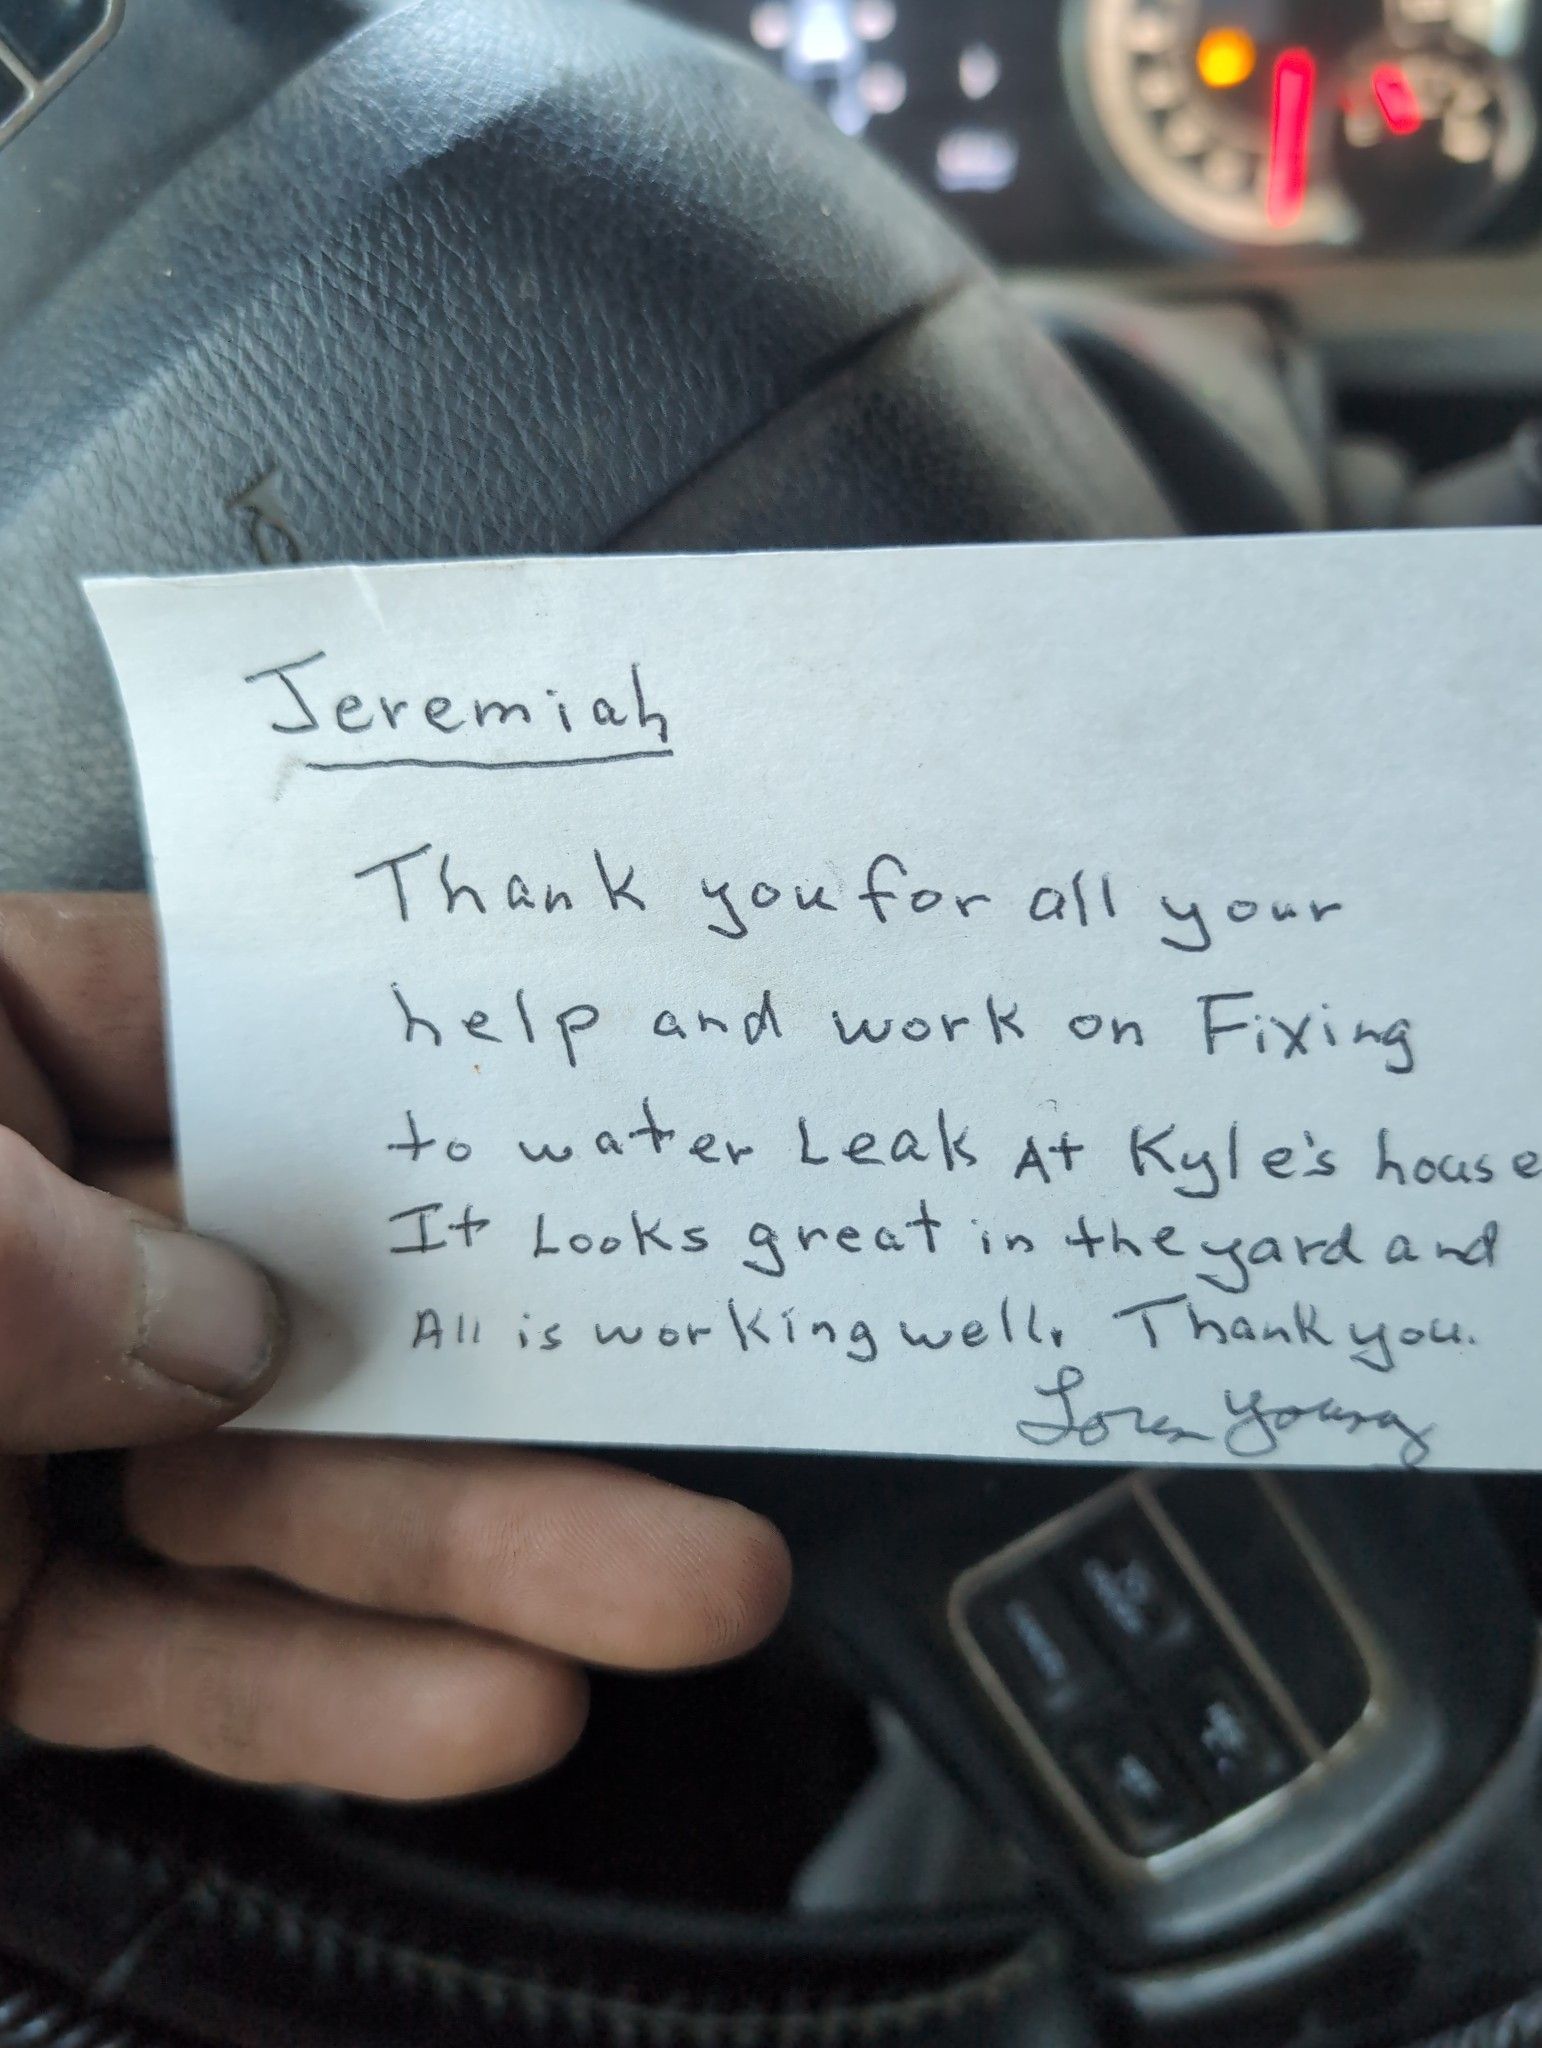 Jeremiah
Thank you for all your
help and work on Fixing
to water Leak At Kyle's house
It Looks great in the yard and
All is working well. Thank you.
Loren Young